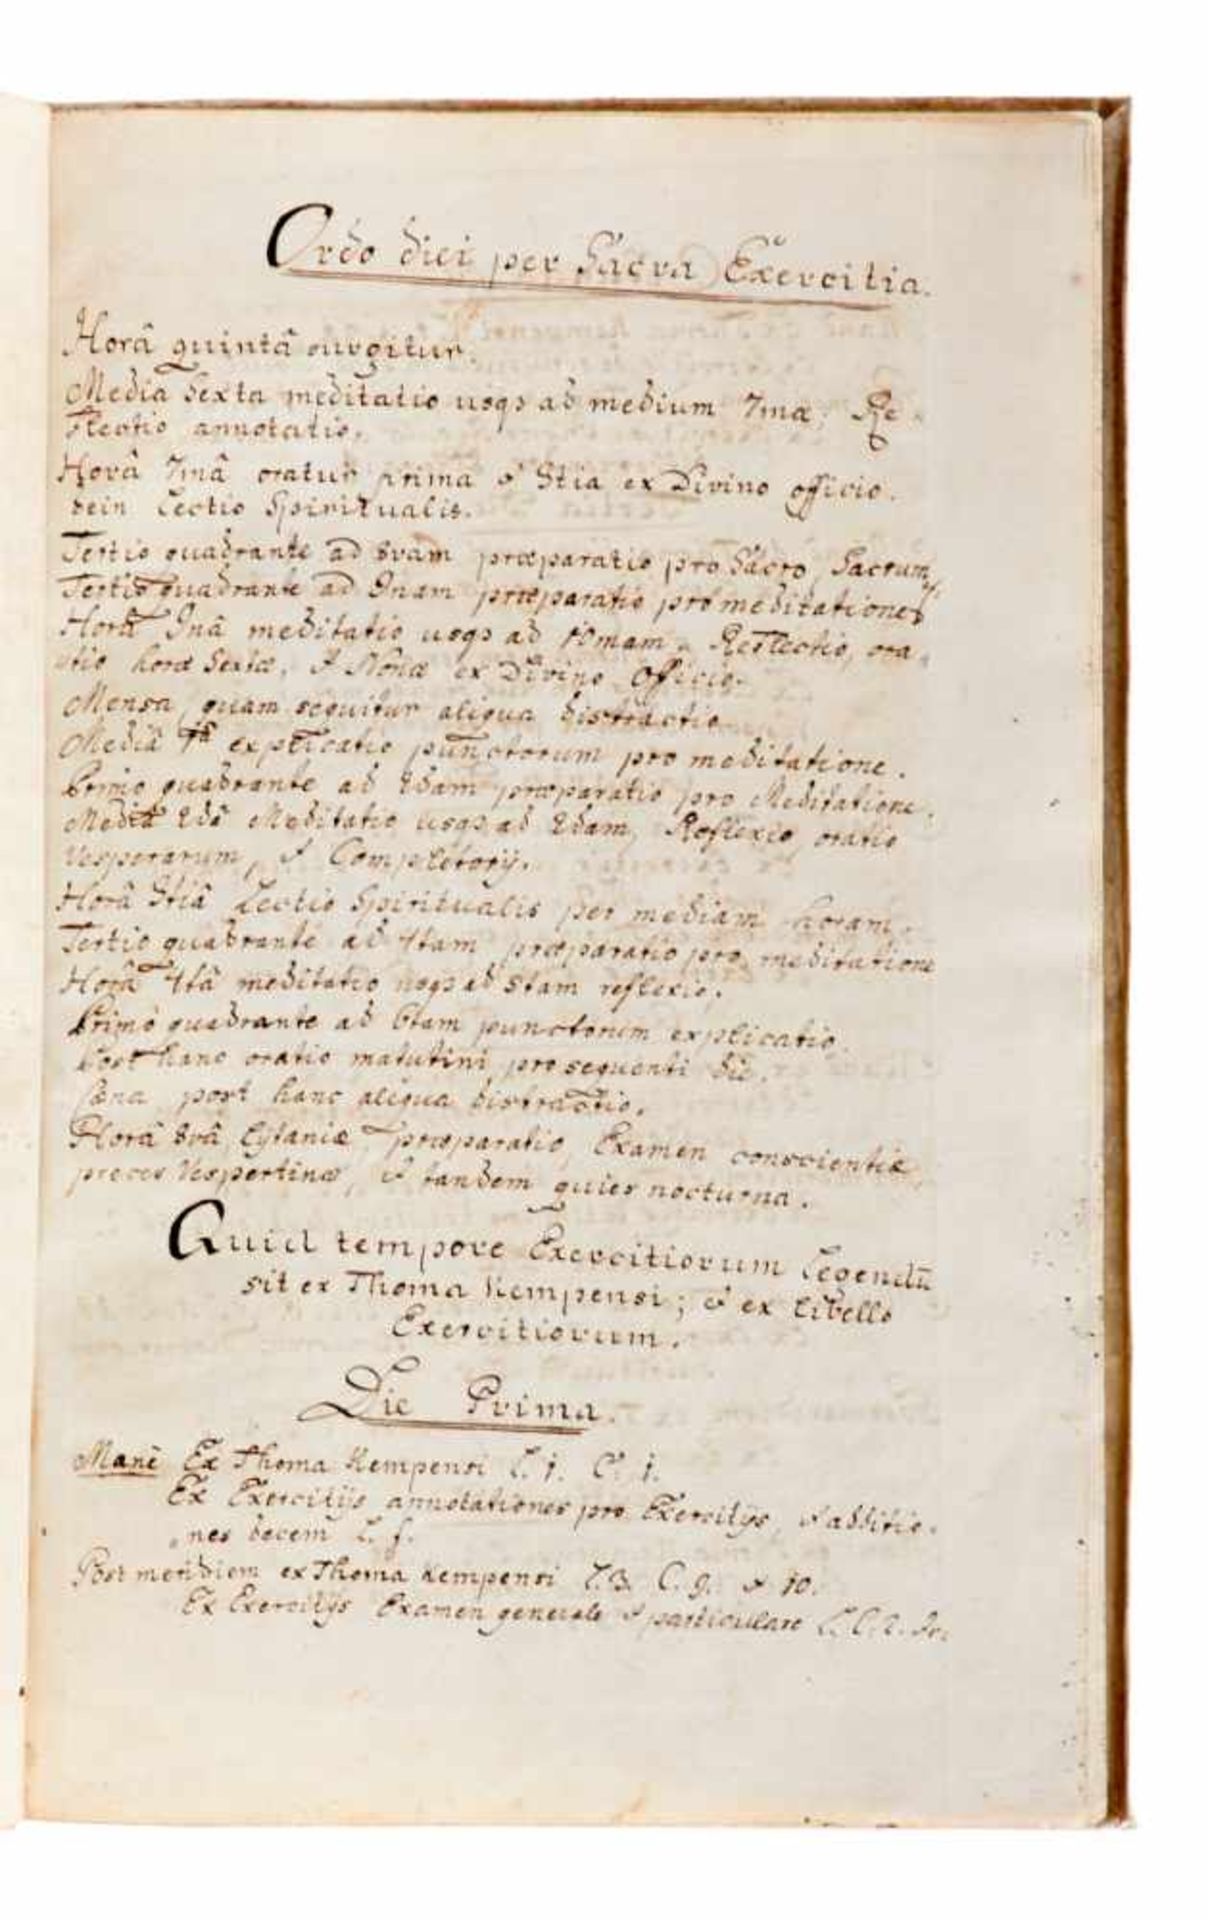 Ordo diei per Sacra Exercitia.
Horâ quintâ surgitur.
Mediâ Sexta meditatio usqs ad medium 7mæ, Re-
flectio annotatio.
Horâ 7mâ oratur prima & 3tia ex Divino officio.
dein Lectio Spiritualis.
Tertio quadrante ad 8vam præparatio pro Sacro, Sacrum,
Tertio quadrante ad 9nam præparatio pro meditatione
Horâ 9nâ meditatio usqs ad 10mam. Reflectio, ora-
tio horæ Sextæ, & Nonæ ex Divino Officio.
Mensa, quam sequitur aliqua distractio
Mediâ 1â explicatio punctorum pro meditatione.
Primo quadrante ad 2dam præparatio pro Meditatione.
Mediâ 2dâ Meditatio usqs ad 3dam, Reflexio, oratio
Vesperarum, & Completorij.
Horâ 3tiâ Lectio Spiritualis per mediam horam.
Tertio quadrante ad 4tam præparatio pro meditatione
Horâ 4tâ meditatio usqs ad 5tam reflexio.
Primo quadrante ad 6tam punctorum explicatio.
Post hanc oratio matutini pro sequenti die.
Cæna, post hanc aliqua distractio.
Horâ 8vâ Lytaniæ, præparatio, Examen conscientiæ,
preces Vespertinæ, & tandem quies nocturna.
Quid tempore Exercitiorum Legendū
sit ex Thoma Kempensi; & ex libello
Exercitiorum.
Die Prima.
Manè Ex Thoma Kempensi L. 1. C. 1.
Ex Exercitijs annotationes pro Exercitijs, & additio-
nes decem L. f.
Post meridiem ex Thoma Kempensi L. 3. C. 9. & 10.
Ex Exercitijs Examen generale & particulare L. C. 2.